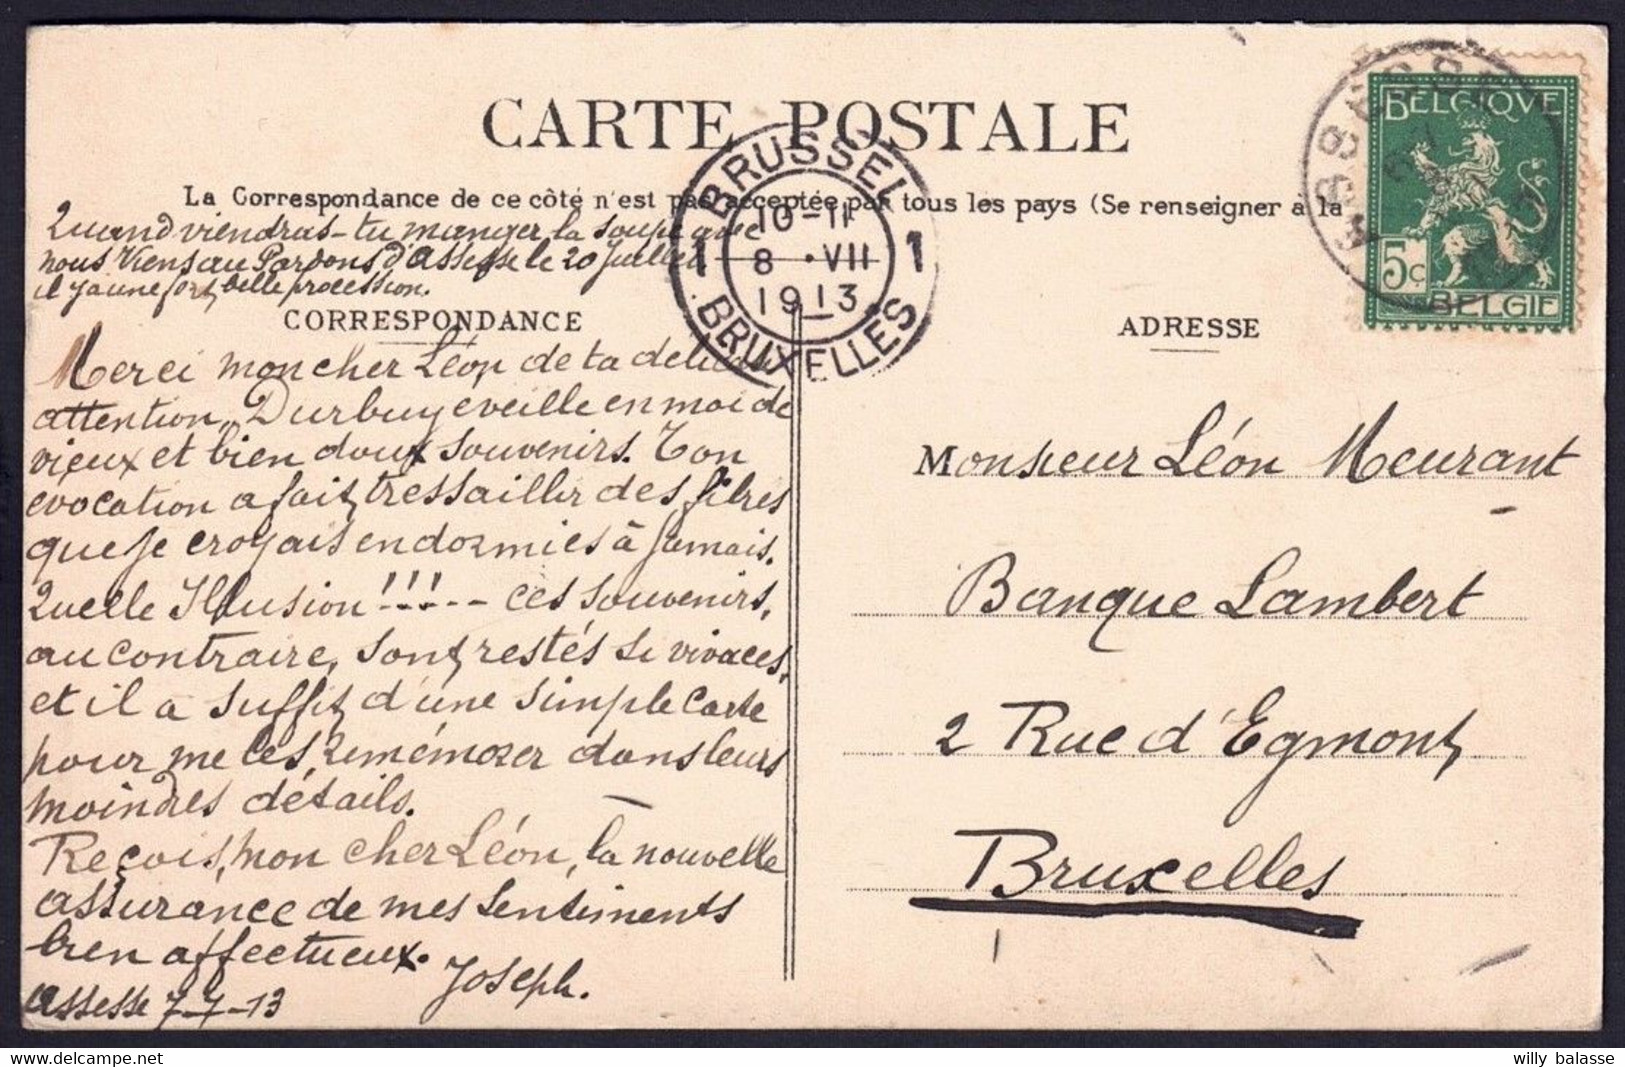 CARTE POSTALE
La Correspondance de ce côté n'est pas acceptée par tous les pays (Se renseigner à la
Quand viendras-tu manger la soupe avec
nous Viens au Pardons d'Assesse le 20 Juillet
il y a une fort belle procession.
CORRESPONDANCE
Merci mon cher Léon de ta délicate
attention, Durbuy eveille en moi de
vieux et bien doux souvenirs. Ton
evocation a fait tressaillir des fibres
que je croyais endormies à jamais.
Quelle Illusion!!!-- ces souvenirs,
au contraire, sont restés si vivaces,
et il a suffit d'une simple Carte
pour me les remémorer dans leurs
moindres détails.
Reçois, mon cher Léon, la nouvelle
assurance de mes sentiments
bien affectueux.
Joseph.
Assesse 7-7-13
BRUSSEL
10-11
1 8 · VII 1
1913
BRUXELLES
BELGIQVE
5c
BELGIE
ADRESSE
Monsieur Léon Meurant
Banque Lambert
2 Rue d'Egmont
Bruxelles
willy balasse